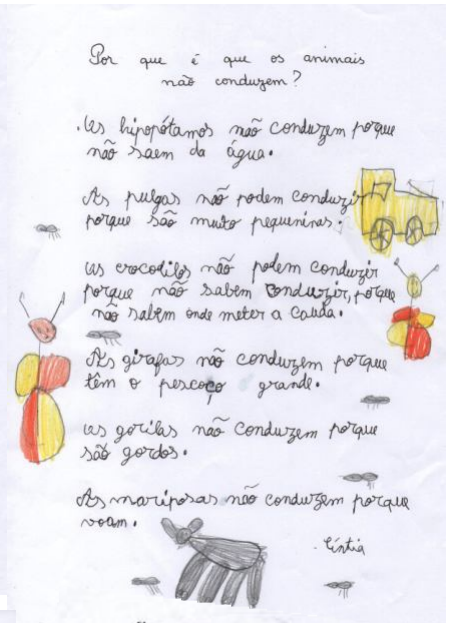 Por que é que os animais
não conduzem?
Os hipopótamos não conduzem porque
não saem da água.
As pulgas não podem conduzir
porque são muito pequeninas.
Os crocodilos não podem conduzir
porque não sabem conduzir, porque
não sabem onde meter a cauda.
As girafas não conduzem porque
têm o pescoço grande.
Os gorilas não conduzem porque
são gordos.
As mariposas não conduzem porque
voam.
Cíntia